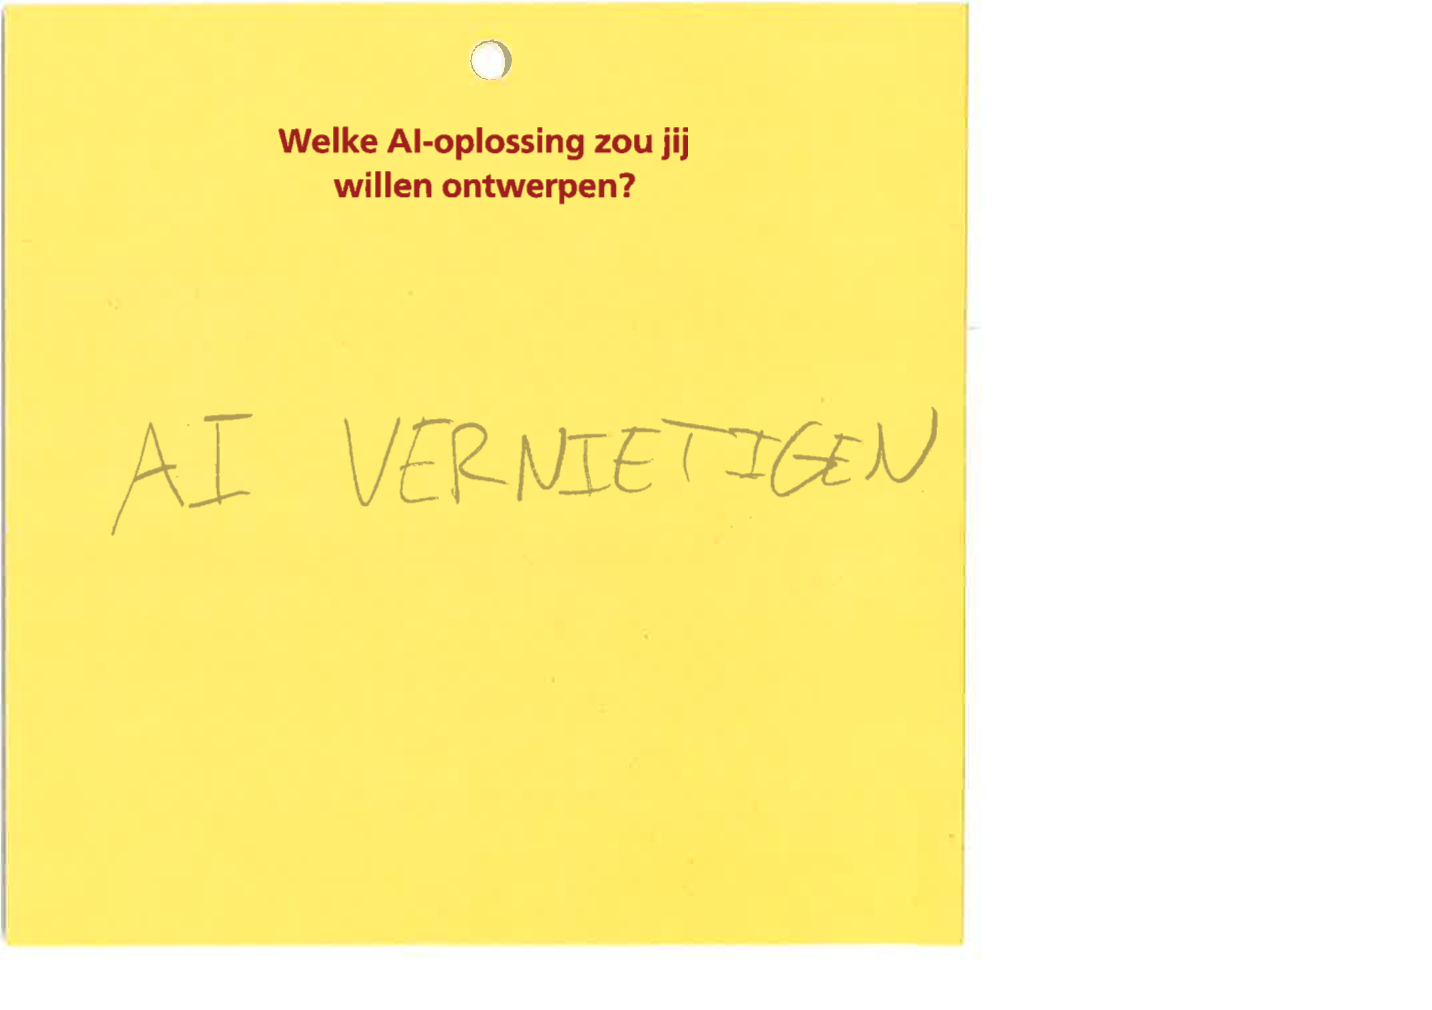 Welke AI-oplossing zou jij
willen ontwerpen?
AI VERNIETIGEN